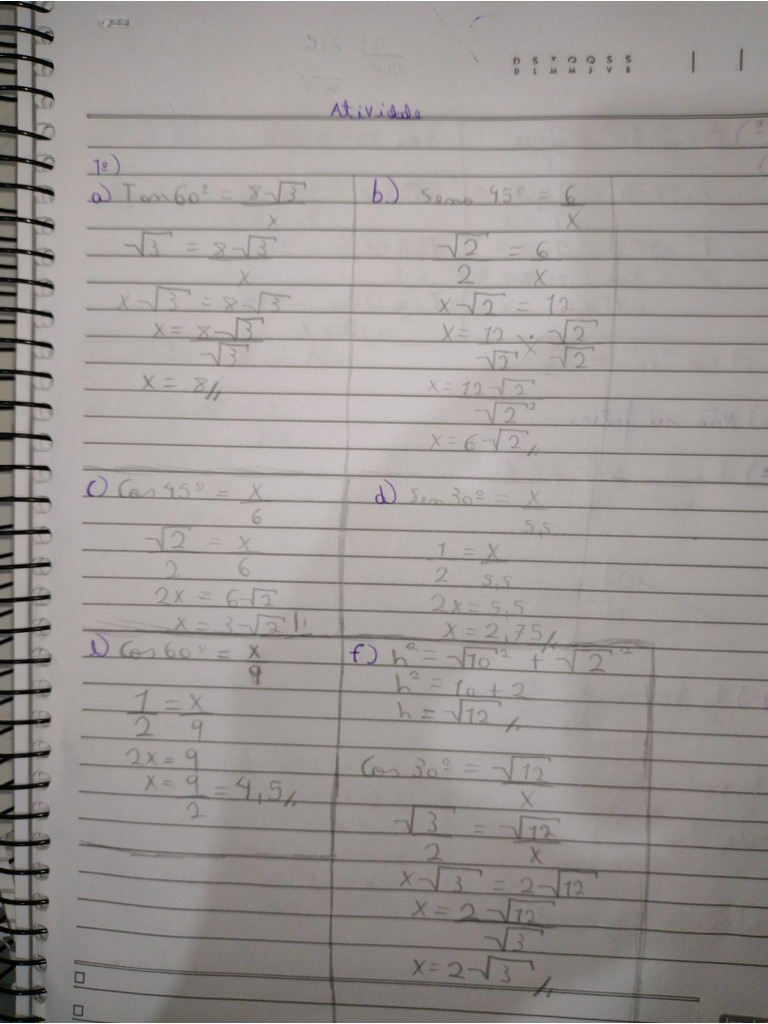 D S T Q Q S S
D L M M J V S
Atividade
1º)
a) Tan 60º = 8√3
x
√3 = 8√3
x
x√3 = 8√3
x = 8√3
√3
x = 8//
b) Seno 45º = 6
x
√2 = 6
2 x
x√2 = 12
x = 12 . √2
√2 √2
x = 12√2
√2²
x = 6√2//
c) Cos 45º = x
6
√2 = x
2 6
2x = 6√2
x = 3√2//
d) Sen 30º = x
5,5
1 = x
2 5,5
2x = 5,5
x = 2,75//
e) Cos 60º = x
9
1 = x
2 9
2x = 9
x = 9 = 4,5//
2
f) h² = √10² + √2²
h² = 10 + 2
h = √12//
Cos 30º = √12
x
√3 = √12
2 x
x√3 = 2√12
x = 2√12
√3
x = 2√3//